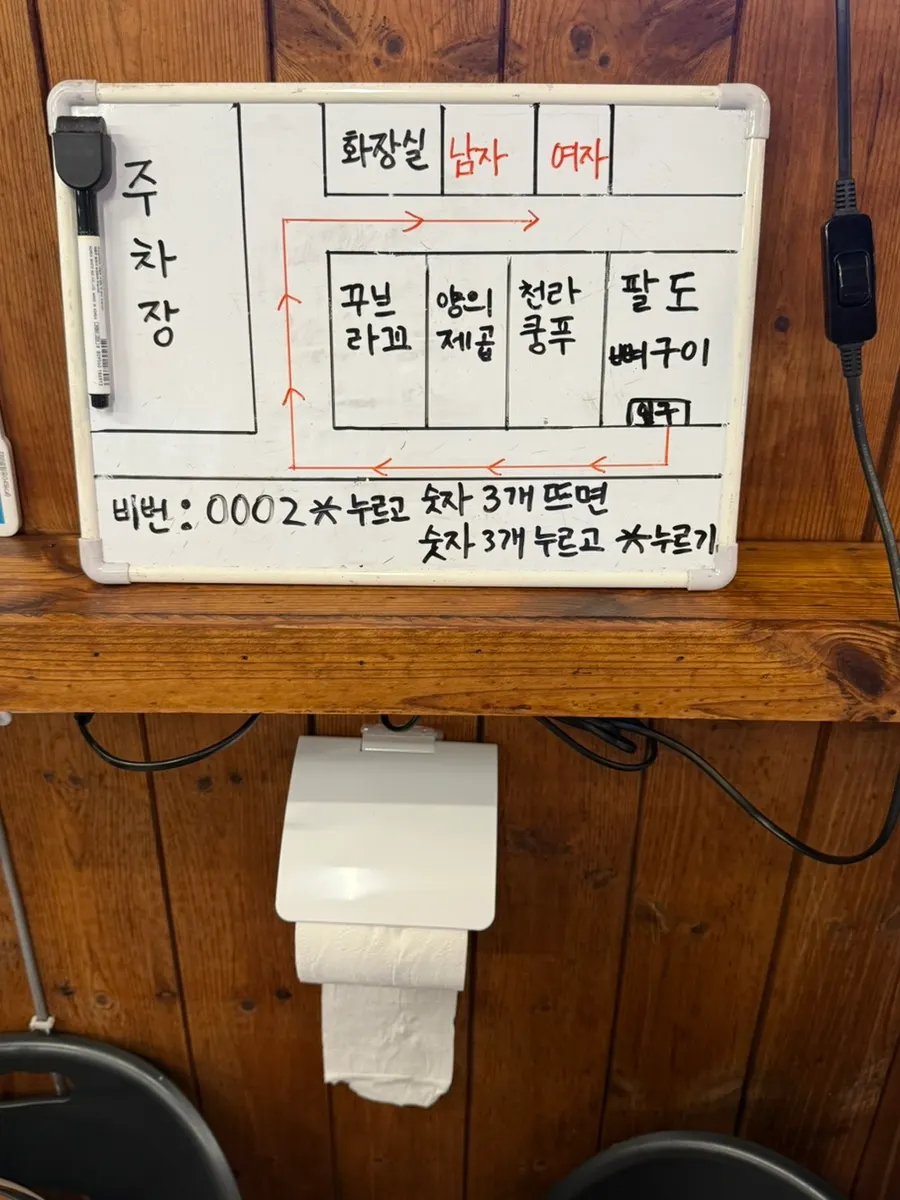 주
차
장
화장실 남자 여자
꾸브
라꼬
양의
제곱
천라
쿵푸
팔도
뼈구이
입구
비번: 0002* 누르고 숫자 3개 뜨면
숫자 3개 누르고 *누르기